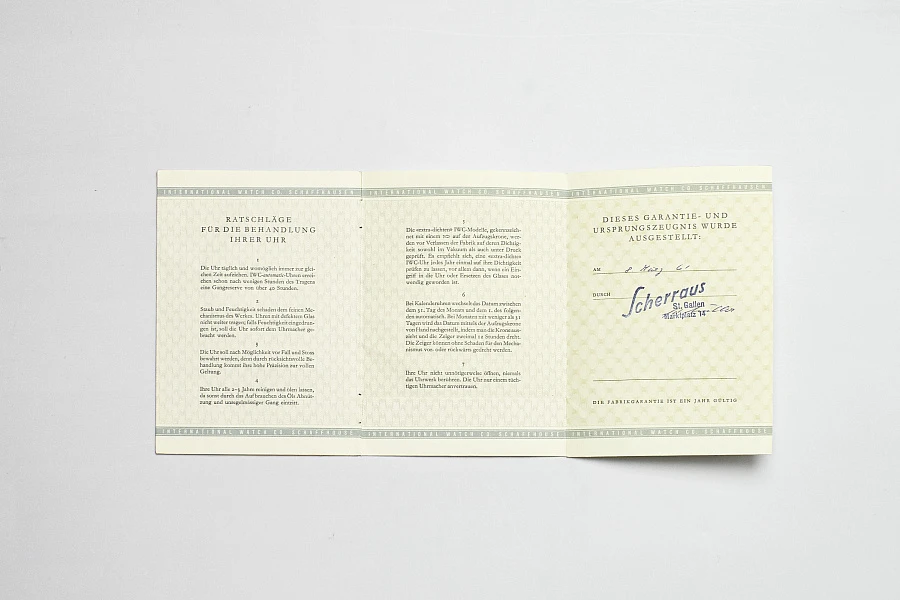 INTERNATIONAL WATCH CO SCHAFFHAUSEN
RATSCHLÄGE
FÜR DIE BEHANDLUNG
IHRER UHR
1
Die Uhr täglich und womöglich immer zur glei-
chen Zeit aufziehen. IWC-automatic-Uhren errei-
chen schon nach wenigen Stunden des Tragens
eine Gangreserve von über 40 Stunden.
2
Staub und Feuchtigkeit schaden dem feinen Me-
chanismus des Werkes. Uhren mit defektem Glas
nicht weiter tragen; falls Feuchtigkeit eingedrun-
gen ist, soll die Uhr sofort dem Uhrmacher ge-
bracht werden.
3
Die Uhr soll nach Möglichkeit vor Fall und Stoss
bewahrt werden, denn durch rücksichtsvolle Be-
handlung kommt ihre hohe Präzision zur vollen
Geltung.
4
Ihre Uhr alle 2-3 Jahre reinigen und ölen lassen,
da sonst durch das Aufbrauchen des Öls Abnüt-
zung und unregelmässiger Gang eintritt.
INTERNATIONAL WATCH CO SCHAFFHAUSEN
INTERNATIONAL WATCH CO SCHAFFHAUSEN
5
Die «extra-dichten» IWC-Modelle, gekennzeich-
net mit einem auf der Aufzugskrone, wer-
den vor Verlassen der Fabrik auf deren Dichtig-
keit sowohl im Vakuum als auch unter Druck
geprüft. Es empfiehlt sich, eine «extra-dichte»
IWC-Uhr jedes Jahr einmal auf ihre Dichtigkeit
prüfen zu lassen, vor allem dann, wenn ein Ein-
griff in die Uhr oder Ersetzen des Glases not-
wendig geworden ist.
6
Bei Kalenderuhren wechselt das Datum zwischen
dem 31. Tag des Monats und dem 1. des folgen-
den automatisch. Bei Monaten mit weniger als 31
Tagen wird das Datum mittels der Aufzugskrone
von Hand nachgestellt, indem man die Krone aus-
zieht und die Zeiger zweimal 12 Stunden dreht.
Die Zeiger können ohne Schaden für den Mecha-
nismus vor- oder rückwärts gedreht werden.
7
Ihre Uhr nicht unnötigerweise öffnen, niemals
das Uhrwerk berühren. Die Uhr einem tüch-
tigen Uhrmacher anvertrauen.
INTERNATIONAL WATCH CO SCHAFFHAUSEN
INTERNATIONAL WATCH CO SCHAFFHAUSEN
DIESES GARANTIE- UND
URSPRUNGSZEUGNIS WURDE
AUSGESTELLT:
AM 8 März 61
DURCH Scherraus
St. Gallen
Marktplatz 14
DIE FABRIKGARANTIE IST EIN JAHR GÜLTIG
INTERNATIONAL WATCH CO SCHAFFHAUSEN